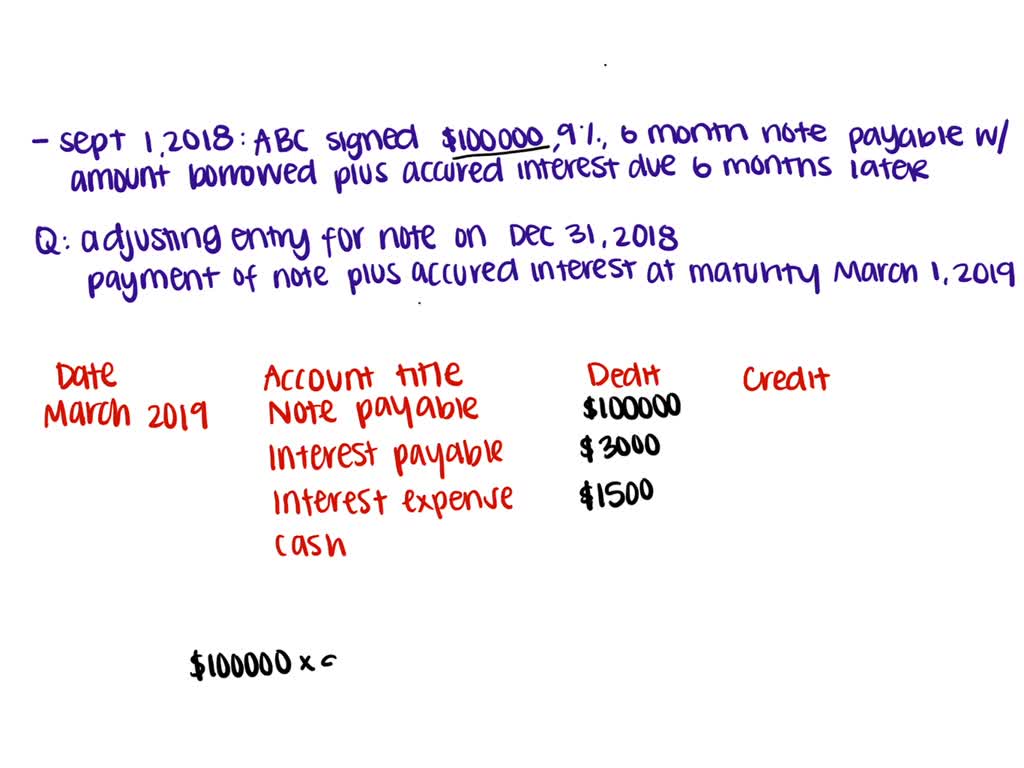 - sept 1, 2018: ABC signed $100000, 9%, 6 month note payable w/
amount borrowed plus accured interest due 6 months later
Q: adjusting entry for note on Dec 31, 2018
payment of note plus accured interest at maturity March 1, 2019
Date Account title Dedit Credit
March 2019 Note payable $100000
Interest payable $3000
Interest expense $1500
cash
$100000 x